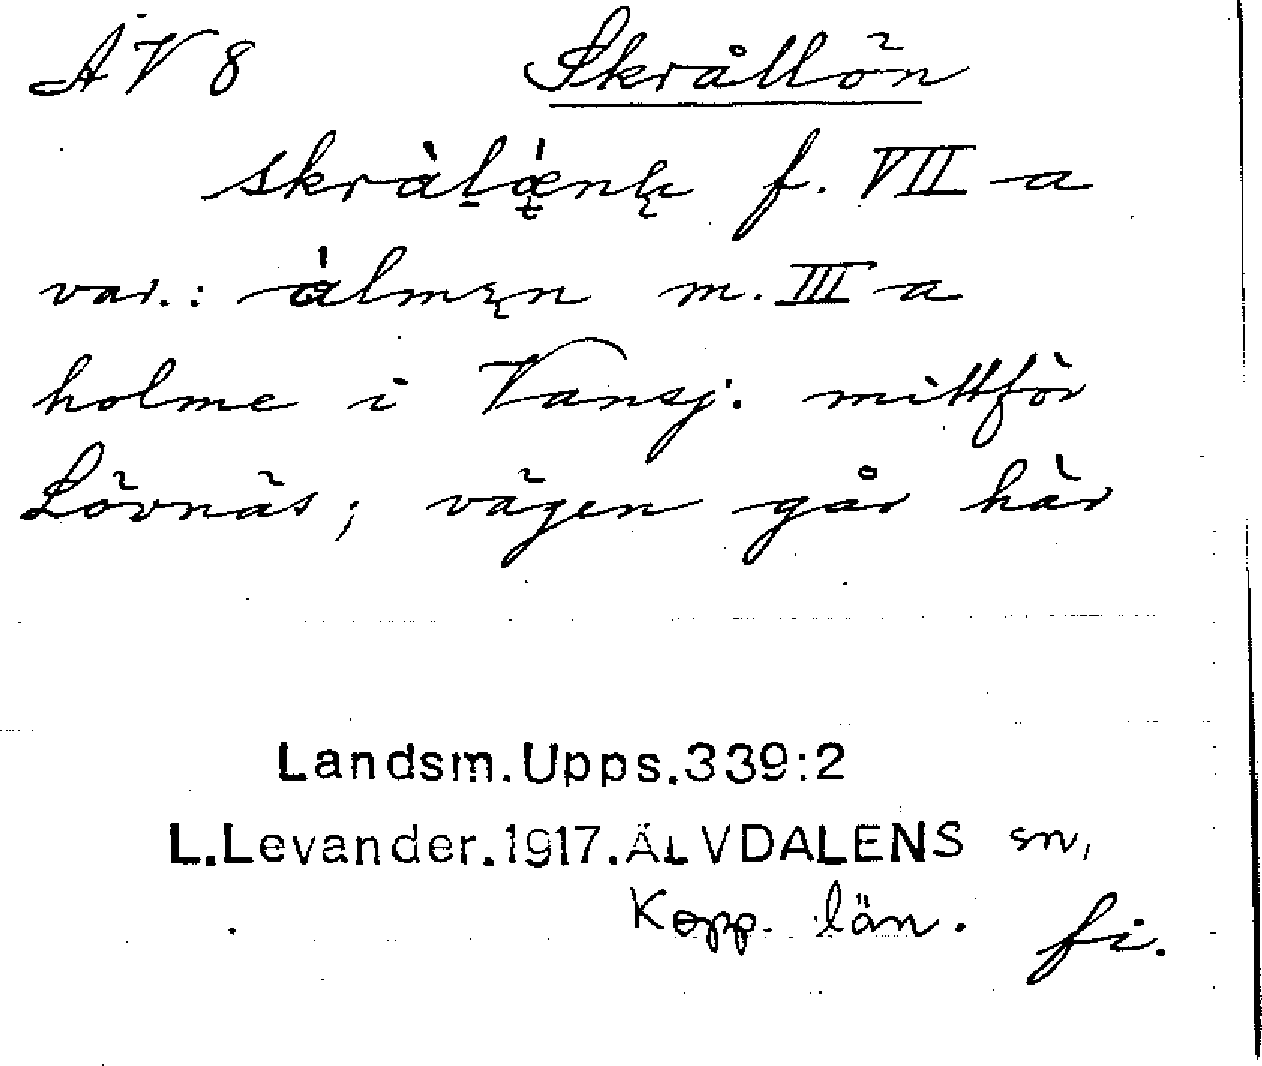 ÅV 8 Skrållön
f. VII a
var.: m. III a
holme i Vansj. mittför
Lövnäs; vägen går här
Landsm.Upps.339:2
L.Levander.1917.ÄLVDALENS sn,
Kopp. län. fi.